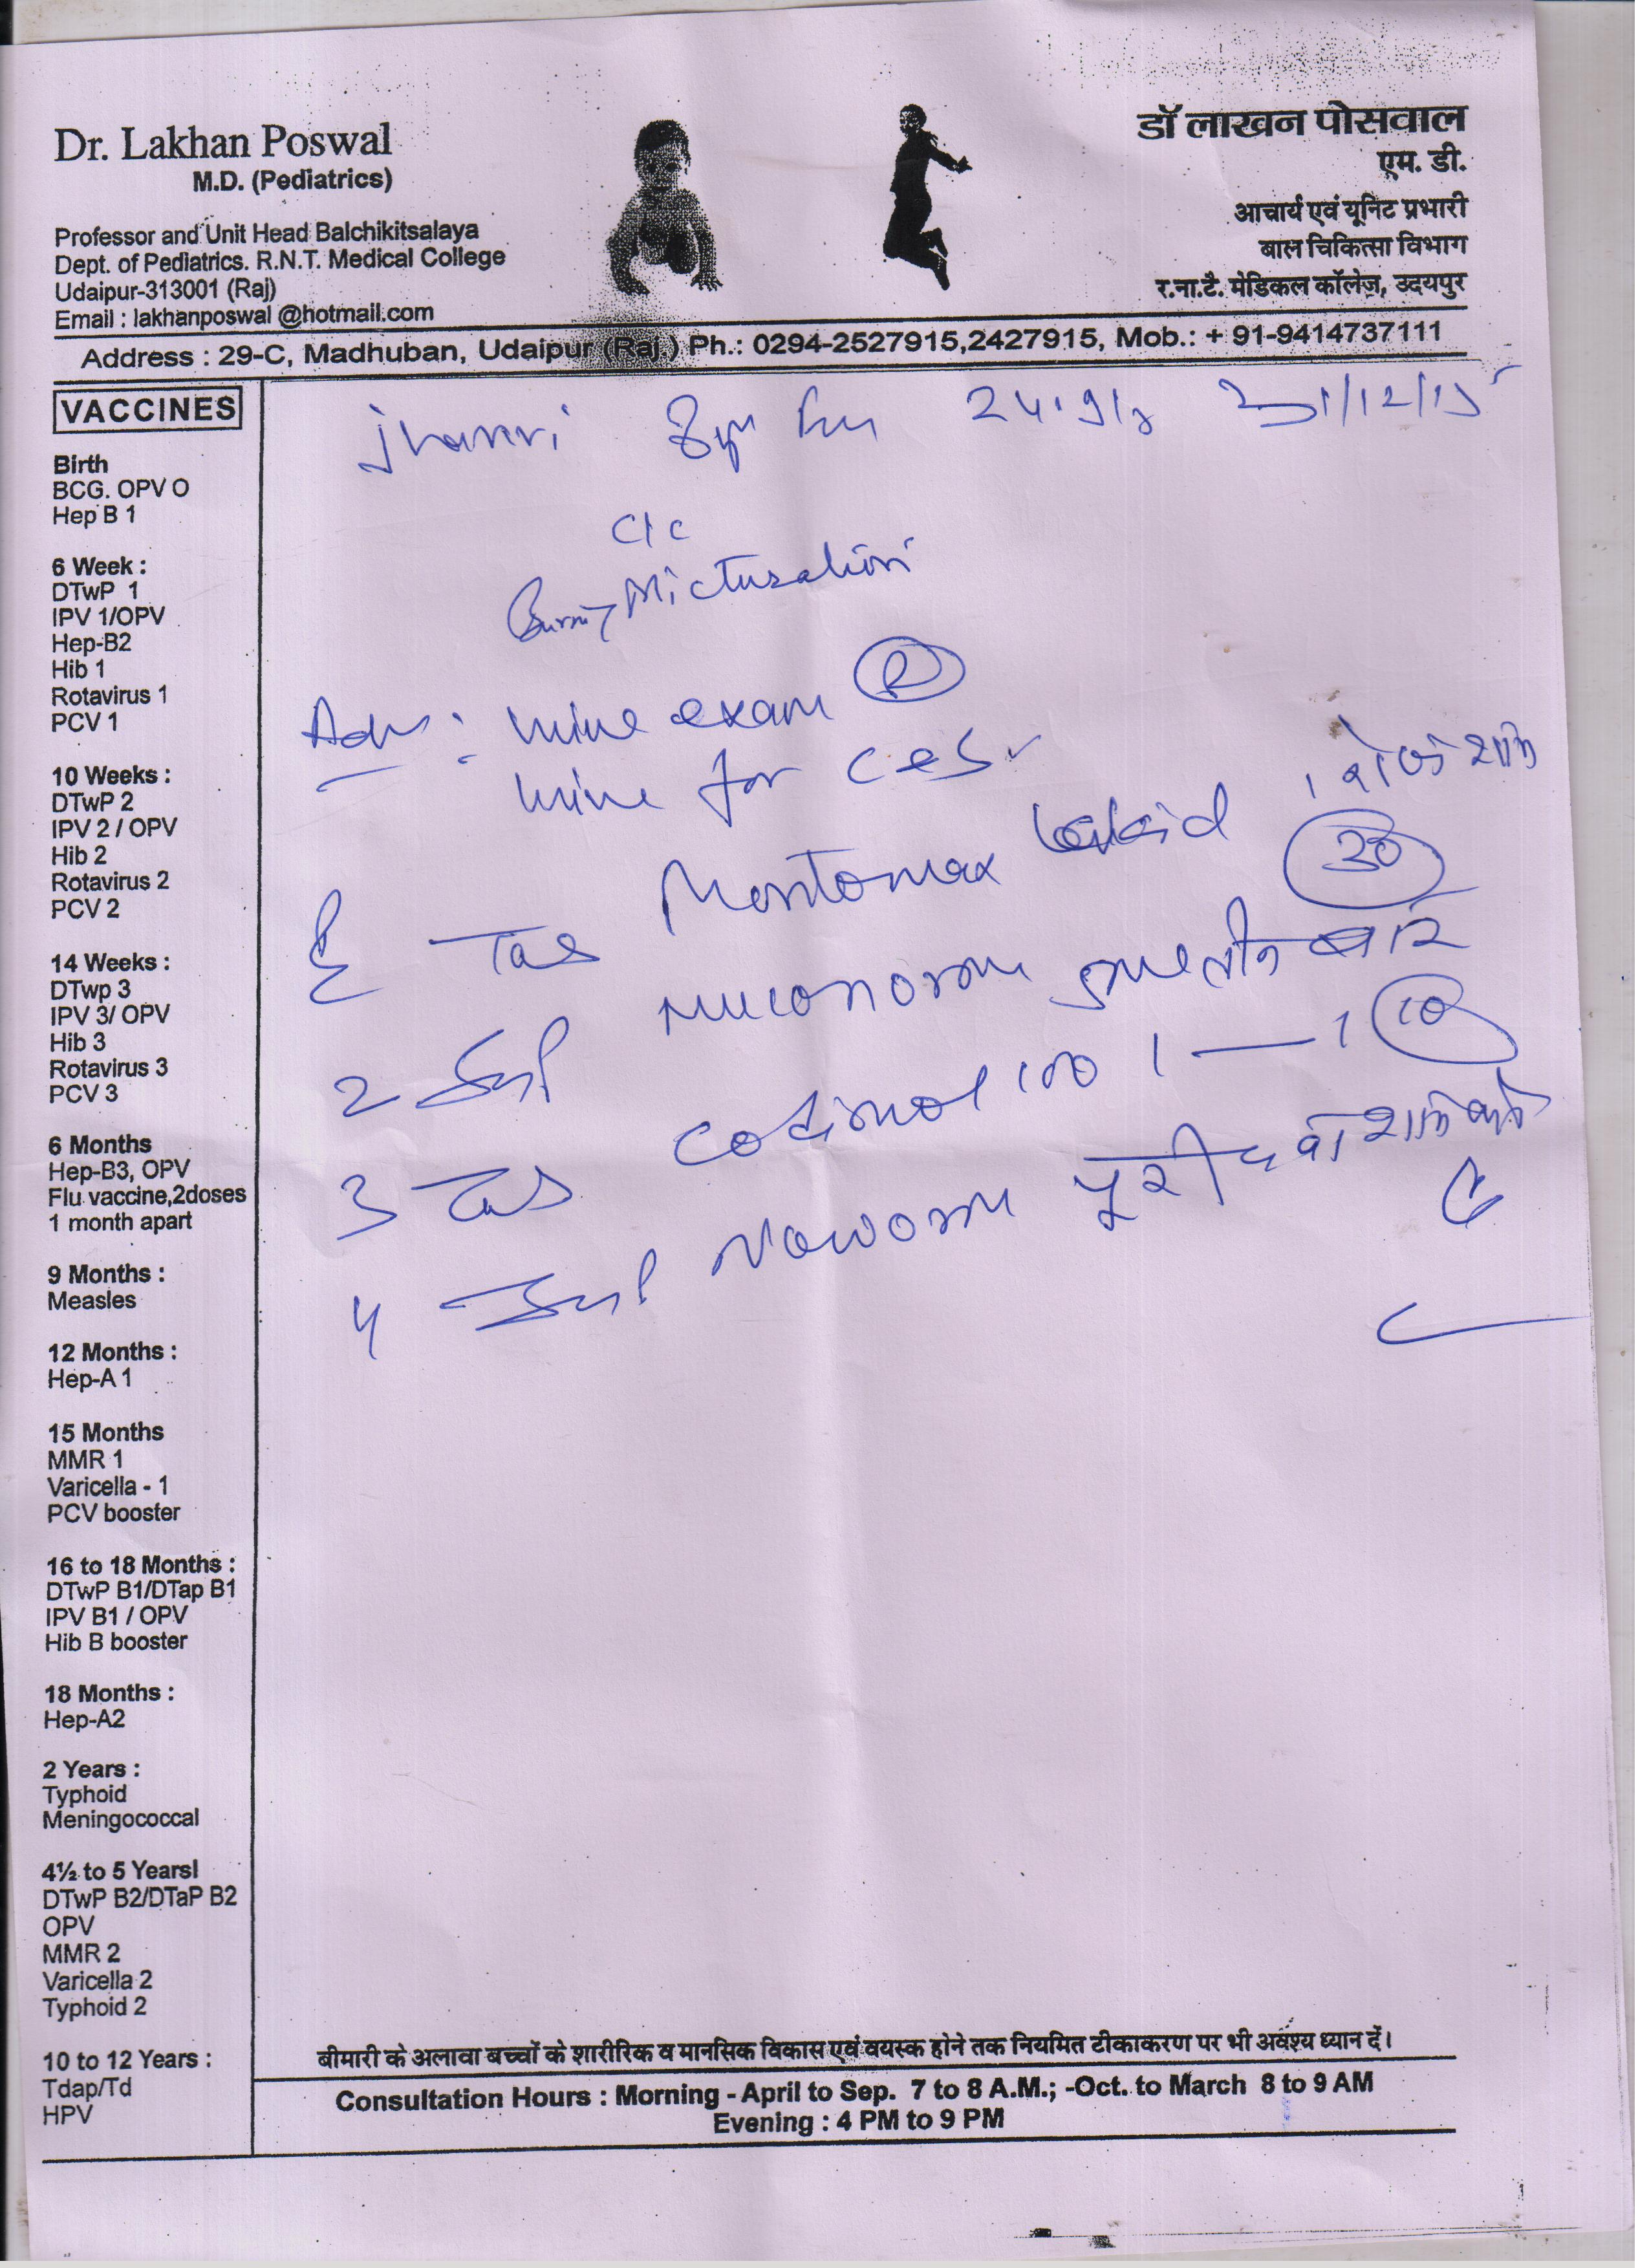 Dr. Lakhan Poswal
M.D. (Pediatrics)
Professor and Unit Head Balchikitsalaya
Dept. of Pediatrics. R.N.T. Medical College
Udaipur-313001 (Raj)
Email : lakhanposwal @hotmail.com
डॉ लाखन पोसवाल
एम. डी.
आचार्य एवं यूनिट प्रभारी
बाल चिकित्सा विभाग
र.ना.टै. मेडिकल कॉलेज, उदयपुर
Address : 29-C, Madhuban, Udaipur (Raj.) Ph.: 0294-2527915,2427915, Mob.: + 91-9414737111
VACCINES
Birth
BCG. OPV O
Hep B 1
6 Week :
DTwP 1
IPV 1/OPV
Hep-B2
Hib 1
Rotavirus 1
PCV 1
10 Weeks :
DTwP 2
IPV 2 / OPV
Hib 2
Rotavirus 2
PCV 2
14 Weeks :
DTwp 3
IPV 3/ OPV
Hib 3
Rotavirus 3
PCV 3
6 Months
Hep-B3, OPV
Flu vaccine,2doses
1 month apart
9 Months :
Measles
12 Months :
Hep-A 1
15 Months
MMR 1
Varicella - 1
PCV booster
16 to 18 Months :
DTwP B1/DTap B1
IPV B1 / OPV
Hib B booster
18 Months :
Hep-A2
2 Years :
Typhoid
Meningococcal
4½ to 5 Yearsl
DTwP B2/DTaP B2
OPV
MMR 2
Varicella 2
Typhoid 2
10 to 12 Years :
Tdap/Td
HPV
31/12/15
C/c
Burning Micturation
Adv : urine exam (R)
urine for c&s
Tab Montomax 1 रोज शाम
30
2 Syp Muconorm तीन बार
3 Tab 100 1 — 1 10
4 Syp Noworm पूरी दवा शाम को
बीमारी के अलावा बच्चों के शारीरिक व मानसिक विकास एवं वयस्क होने तक नियमित टीकाकरण पर भी अवश्य ध्यान दें।
Consultation Hours : Morning - April to Sep. 7 to 8 A.M.; -Oct. to March 8 to 9 AM
Evening : 4 PM to 9 PM